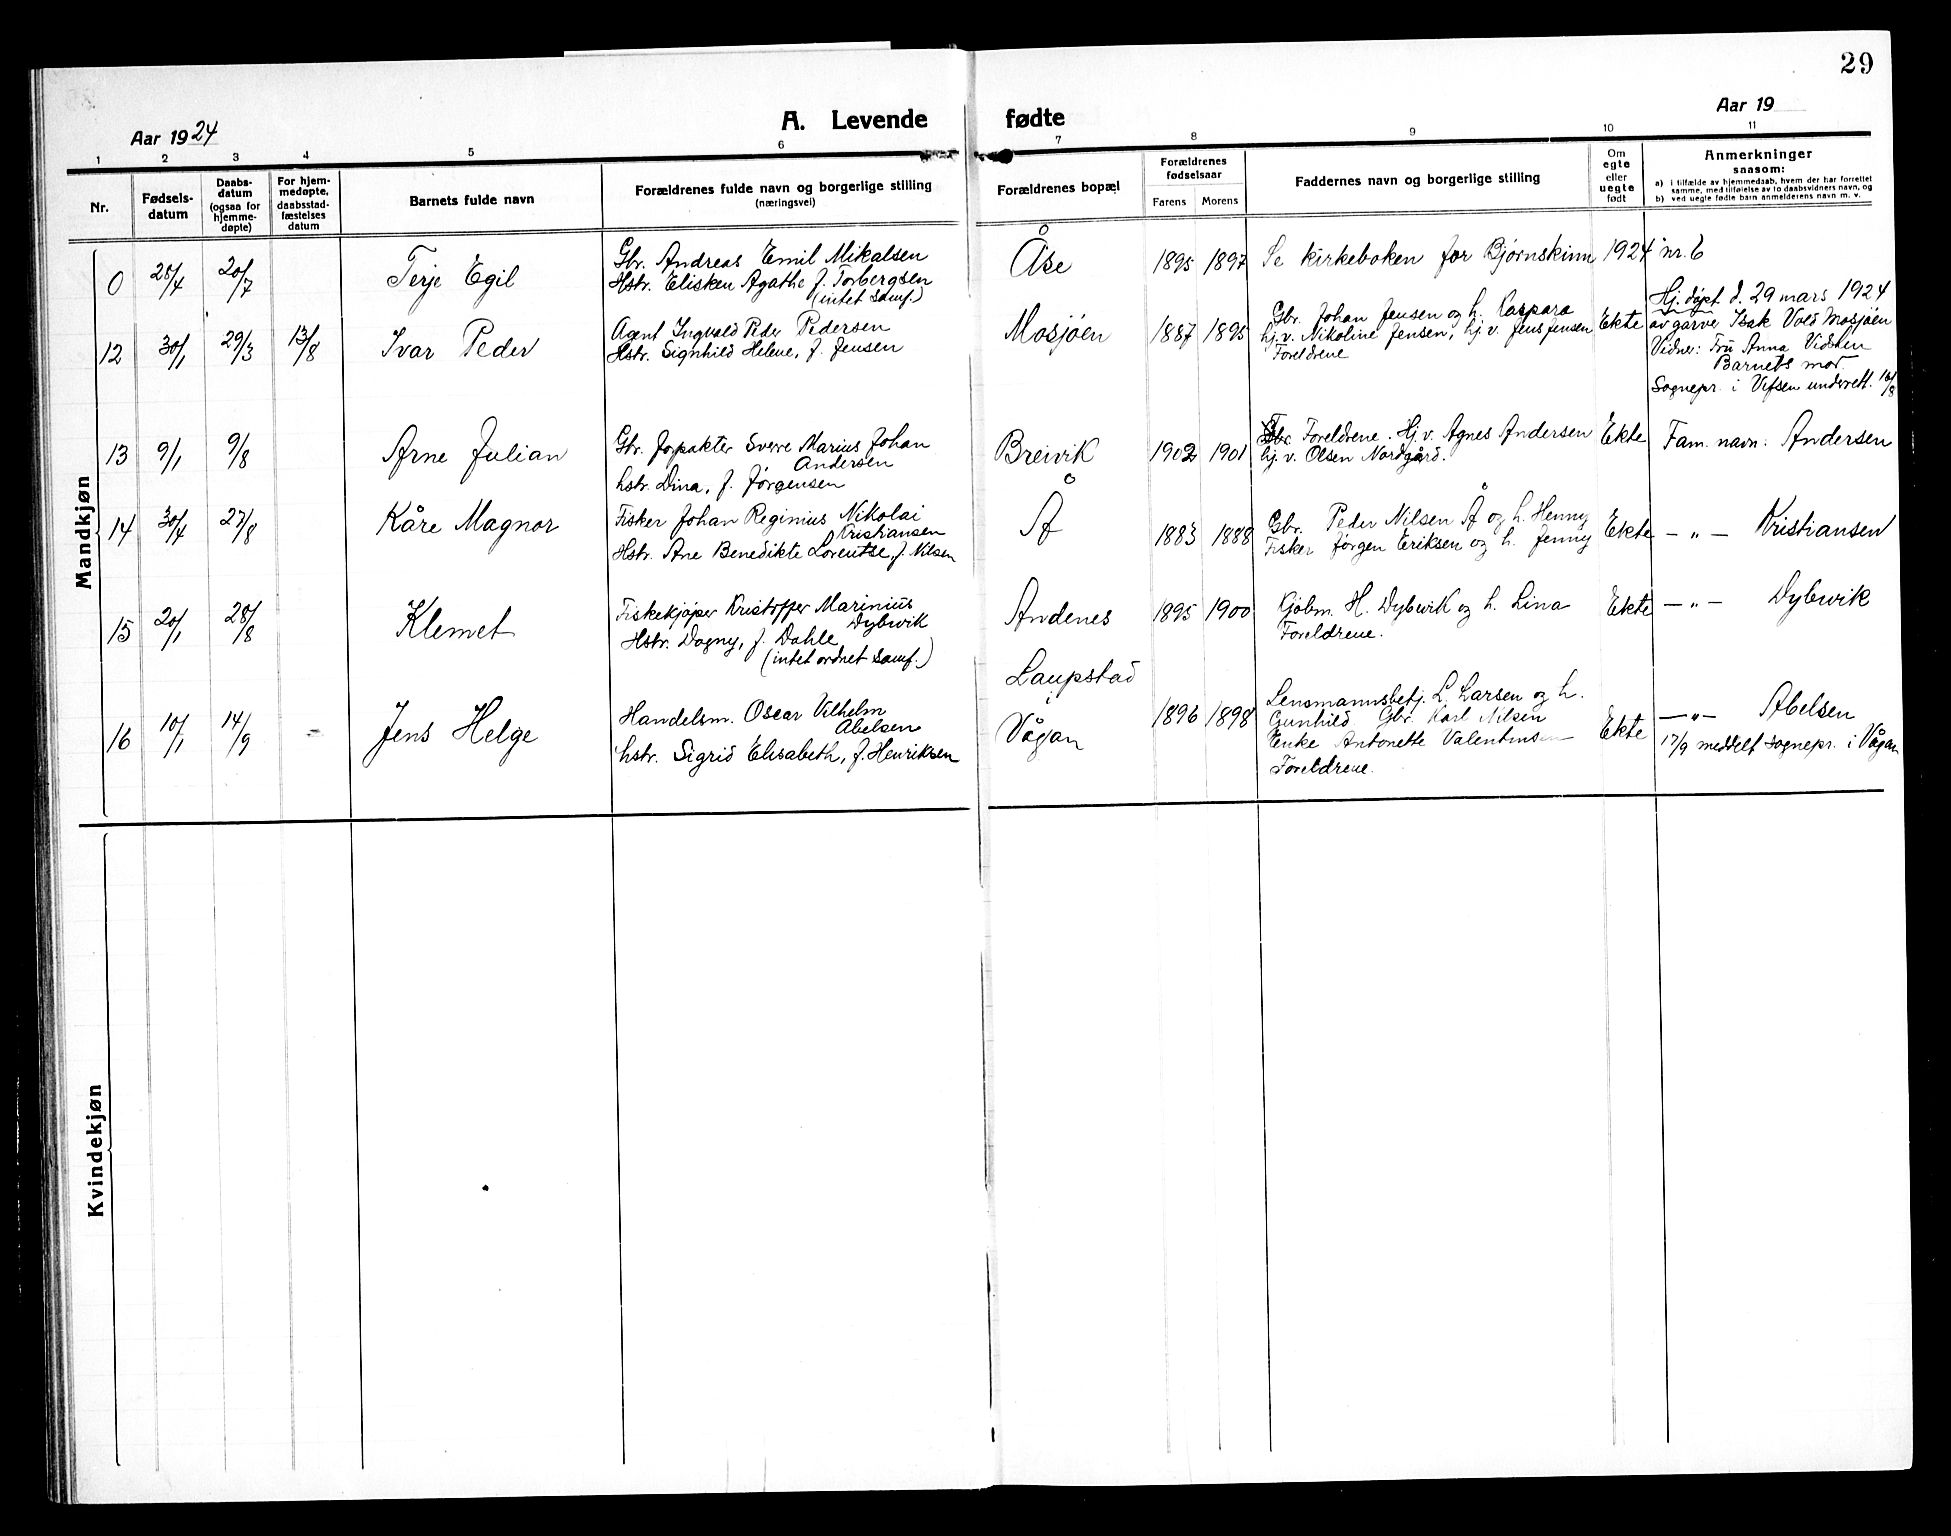 29
Aar 1924
A. Levende fødte
Aar 19
1 2 3 4 5 6 7 8 9 10 11
Nr.
Fødsels-
datum
Daabs-
datum
(ogsaa for
hjemme-
døpte)
For hjem-
medøpte,
daabsstad-
fæstelses
datum
Barnets fulde navn
Forældrenes fulde navn og borgerlige stilling
(næringsvei)
Forældrenes bopæl
Forældrenes
fødselsaar
Farens Morens
Faddernes navn og borgerlige stilling
Om
egte
eller
uegte
født
Anmerkninger
saasom:
a) i tilfælde av hjemmedaab, hvem der har forrettet
samme, med tilføielse av to daabsvidners navn, og
b) ved uegte fødte barn anmelderens navn m. v.
Mandkjøn
0 28/4 20/7 Terje Egil
Gbr. Andreas Emil Mikalsen
Hstr. Elisken Agathe f. Torbergsen
(intet samf.)
Åse 1895 1897 Se kirkeboken for Bjørnskinn 1924 nr. 6
12 30/1 29/3 13/8 Ivar Peder
Agent Ingvald Peder Pedersen
Hstr. Signhild Helene, f. Jensen
Mosjøen 1887 1895
Gbr. Johan Jensen og h. Kaspara
hj. v. Nikoline Jensen, hj. v. Jens Jensen
Foreldrene
Ekte
Hj. døpt d. 29 mars 1924
av garve Isak Vold Mosjøen
Vidner: Fru Anna
Barnets mor.
Sognepr. i Vefsen underrett. 16/8
13 9/1 9/8 Arne Julian
Gbr. forpakter Sverre Marius Johan
Andersen
hstr. Dina, f. Jørgensen
Breivik 1902 1901
Foreldrene. Hj. v. Agnes Andersen
hj. v. Olsen Nordgård.
Ekte Fam. navn: Andersen
14 30/4 27/8 Kåre Magnor
Fisker Johan Reginius Nikolai
Kristiansen
Hstr. Ane Benedikte Lorentse, f. Nilsen
Å 1883 1888
Gbr. Peder Nilsen Å og h. Henny
Fisker Jørgen Eriksen og h. Jenny
Ekte — " — Kristiansen
15 20/1 28/8 Klemet
Fiskekjøper Kristoffer Marinius
Dybwik
Hstr. Dagny, f. Dahle
(intet ordnet samf.)
Andenes 1895 1900
Kjøbm. H. Dybwik og h. Lina
Foreldrene.
Ekte — " — Dybwik
16 10/1 14/9 - Jens Helge
Handelsm. Oscar Vilhelm
Abelsen
hstr. Sigrid Elisabeth, f. Henriksen
Laupstad
i
Vågan
1896 1898
Lensmannsbetj. L. Larsen og h.
Gunhild Gbr. Karl Nilsen
Enke Antonette Valentinsen
Foreldrene.
Ekte
— " — Abelsen
17/9 meddelt sognepr. i Vågan
Kvindekjøn